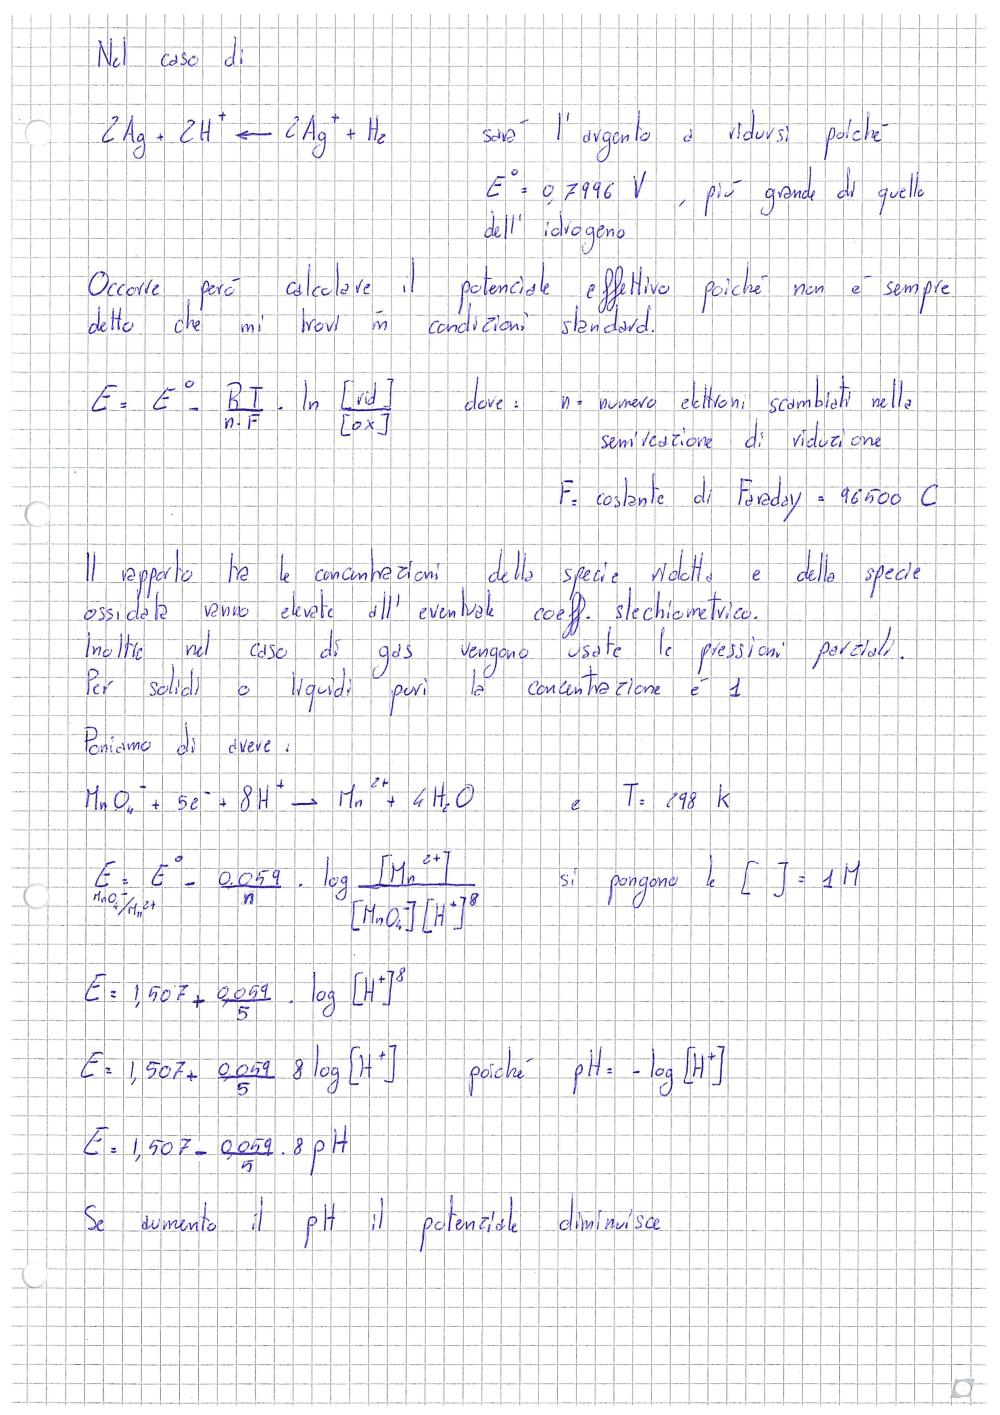 Nel caso di
2Ag + 2H⁺ ← 2Ag⁺ + H₂ sarà l'argento a ridursi poiché
E° = 0,7996 V, più grande di quello
dell'idrogeno
Occorre però calcolare il potenziale effettivo poiché non è sempre
detto che mi trovi in condizioni standard.
E = E° - RT/n·F · ln [rid]/[ox] dove: n = numero elettroni scambiati nella
semireazione di riduzione
F = costante di Faraday = 96500 C
Il rapporto tra le concentrazioni della specie ridotta e della specie
ossidata vanno elevate all'eventuale coeff. stechiometrico.
Inoltre nel caso di gas vengono usate le pressioni parziali.
Per solidi o liquidi puri la concentrazione è 1
Poniamo di avere:
MnO₄⁻ + 5e⁻ + 8H⁺ → Mn²⁺ + 4H₂O e T = 298 k
E MnO₄⁻/Mn²⁺ = E° - 0,059/n · log [Mn²⁺]/[MnO₄⁻][H⁺]⁸ si pongono le [ ] = 1 M
E = 1,507 + 0,059/5 · log [H⁺]⁸
E = 1,507 + 0,059/5 8 log [H⁺] poiché pH = - log [H⁺]
E = 1,507 - 0,059/5 · 8 pH
Se aumento il pH il potenziale diminuisce